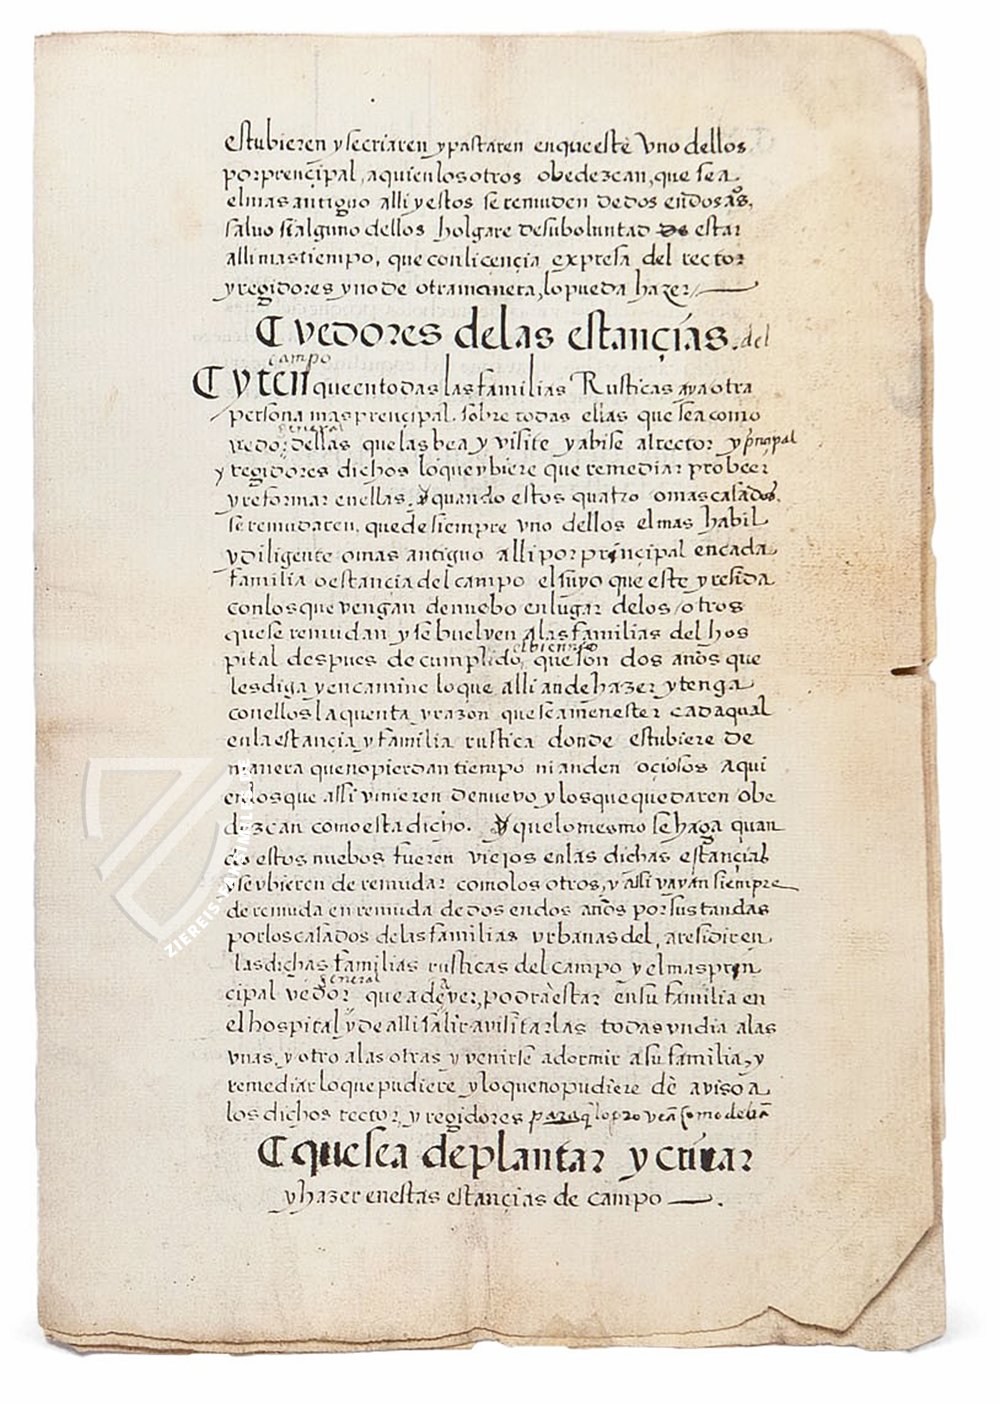 estubieren y se criaren y pastaren en que este vno dellos
por prençipal, a quien los otros obedezcan, que sea
el mas antiguo alli y estos se remuden de dos en dos aos,
saluo si alguno dellos holgare de su boluntad de estar
alli mas tiempo, que con liçençia expresa del rector
y regidores y no de otra manera, lo pueda hazer,
¶ vedores de las estançias. del
campo
¶ yten que en todas las familias Rusticas aya otra
persona mas prençipal. sobre todas ellas que sea como
general
vedor dellas que las bea y visite y abise al rector y prnçpal
y regidores dichos lo que vbiere que remediar probeer
y reformar en ellas. y quando estos quatro o mas casados,
se remudaren, quede siempre vno dellos el mas habil
y diligente o mas antiguo alli por prinçipal en cada
familia o estançia del campo el suyo que este y resida
con los que vengan de nuebo en lugar de los otros
que se remudan y se buelven a las familias del hos
el bienio
pital despues de cumplido, que son dos años que
les diga y encamine lo que alli an de hazer y tenga
con ellos la quenta y razon que sea menester cada qual
en la estançia y familia rustica donde estubiere de
manera que no pierdan tiempo ni anden oçiosos aqui
en los que assi vinieren de nuevo y los que quedaren obe
dezcan como esta dicho. y que lo mesmo se haga quan
do estos nuebos fueren viejos en las dichas estançias
y se vbieren de remudar como los otros, y assi vayan siempre
de remuda en remuda de dos en dos años por sus tandas
por los casados de las familias vrbanas del, a residir en
las dichas familias rusticas del campo y el mas prin
general
cipal vedor que a de aver, podra estar en su familia en
el hospital y de alli salir a visitarlas todas vn dia a las
vnas, y otro a las otras y venirse a dormir a su familia, y
remediar lo que pudiere y lo que no pudiere dè aviso a
los dichos rector, y regidores para q lo provean como deban
¶ que sea de plantar y criar
y hazer en estas estançias de campo
ZIEREIS FAKSIMILES